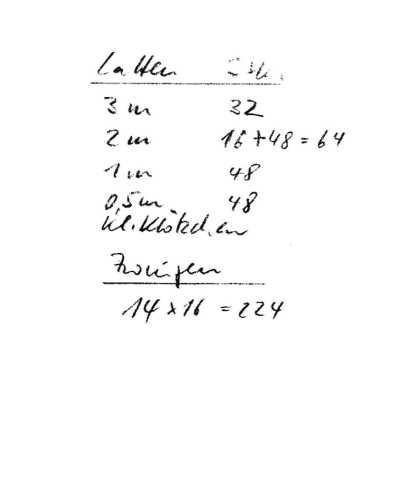 Latten Stk.
3 m 32
2 m 16+48=64
1 m 48
0,5m 48
kl. Klötzchen
Zwingen
14 x 16 = 224